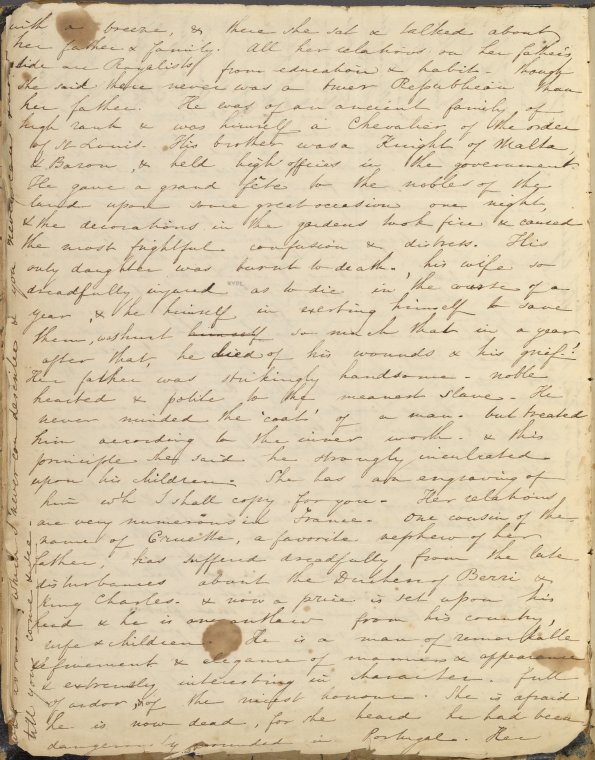 with a breeze, & there she sat & talked about
her father & family. All her relations on her father's
side are Royalists from education & habit - though
she said there never was a truer Republican than
her father. He was of an ancient family of
high rank & was himself a Chevalier of the order
of St Louis. His brother was a Knight of Malta,
& Baron, & held high offices in the government.
He gave a grand fête to the nobles of the
land upon some great occasion one night
& the decorations in the gardens took fire & caused
the most frightful confusion & distress. His
only daughter was burnt to death, his wife so
dreadfully injured as to die in the course of a
year, & he himself in exerting himself to save
them, was hurt himself so much that in a year
after that, he died of his wounds & his grief!
Her father was strikingly handsome - noble
hearted & polite to the meanest slave. He
never minded the 'coat' of a man - but treated
him according to the inner worth - & this
principle she said he strongly inculcated
upon his children. She has an engraving of
him wh I shall copy for you. Her relations
are very numerous in France. One cousin of the
name of Cruette, a favorite nephew of her
father, has suffered dreadfully from the late
disturbances about the Duchess of Berri &
King Charles - & now a price is set upon his
head & he is an outlaw from his country,
wife & children. He is a man of remarkable
refinement & elegance of manners & appearance
& extremely interesting in character. full
of ardor, & of the nicest honour. She is afraid
he is now dead, for she heard he had been
dangerously wounded in Portugal. Her
which I never can describe & you never can
till you come & see